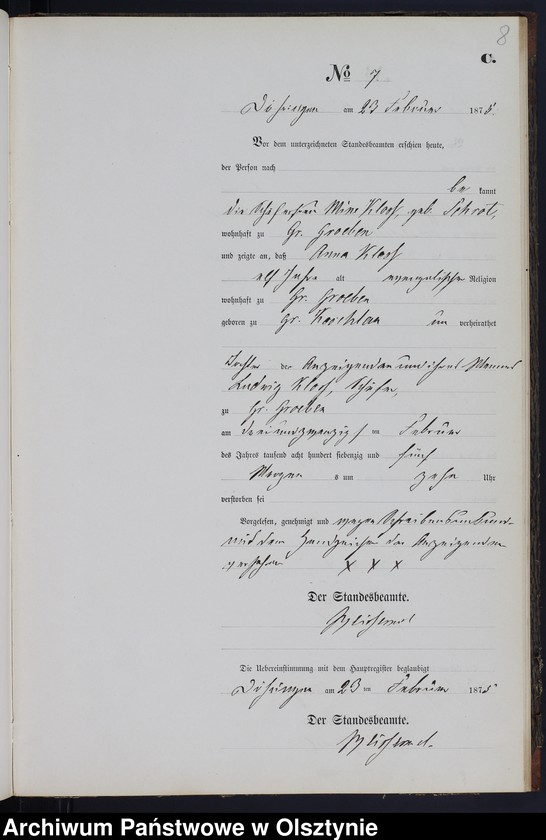 8
C.
No 7.
Döhringen am 23 Februar 1875.
Vor dem unterzeichneten Standesbeamten erschien heute,
der Person nach
be kannt
die Schäferfrau Mine Kloss, geb. Schrot,
wohnhaft zu Gr. Groeben
und zeigte an, daß Anna Kloss
elf Jahre alt evangelischer Religion
wohnhaft zu Gr. Groeben
geboren zu Gr. un verheirathet
Tochter der Anzeigenden und ihres Mannes
Ludwig Kloss, Schäfer,
zu Gr. Groeben
am drei und zwanzigs ten Februar
des Jahres tausend acht hundert siebenzig und fünf
Morgen s um zehn Uhr
verstorben sei
Vorgelesen, genehmigt und wegen Schreibensunkunde
mit dem Handzeichen der Anzeigenden
versehen X X X
Der Standesbeamte.
Die Uebereinstimmung mit dem Hauptregister beglaubigt
Döhringen am 23 ten Februar 1875
Der Standesbeamte.
Archiwum Państwowe w Olsztynie